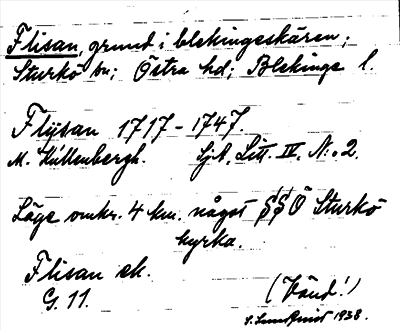 Flisan, grund i blekingeskären;
Sturkö sn; Östra hd; Blekinge l.
Flÿsan 1717-1747.
M.Küllenbergh. Sjk. Litt. IV. N:o 2.
Läge omkr. 4 km. något SSÖ Sturkö
kyrka.
Flisan ek.
G. 11.
(Vänd!)
1938.